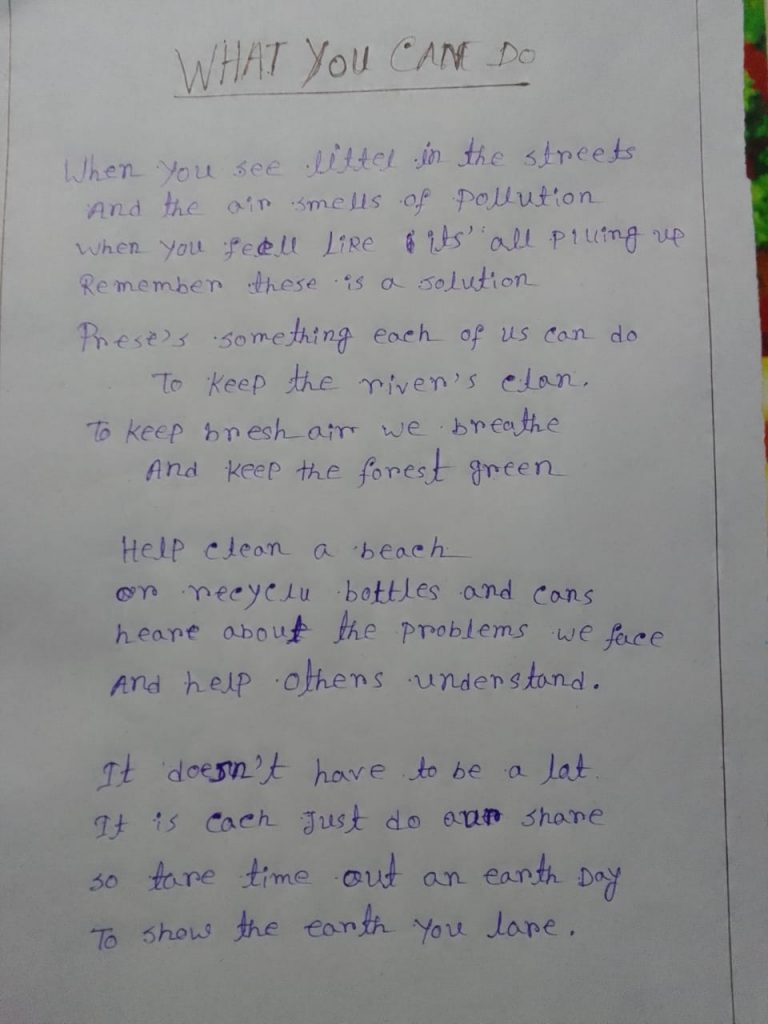 WHAT YOU CANE DO
When you see littel in the streets
And the air smells of pollution
When you feell like its' all piuing up
Remember these is a solution
Prese's something each of us can do
To keep the river's clan.
To keep bresh air we breathe
And keep the forest green
Help clean a beach
or recyclu bottles and cans
heare about the problems we face
And help others understand.
It doesn't have to be a lat.
It is cach just do aur share
so tare time out an earth Day
To show the earth you lare.